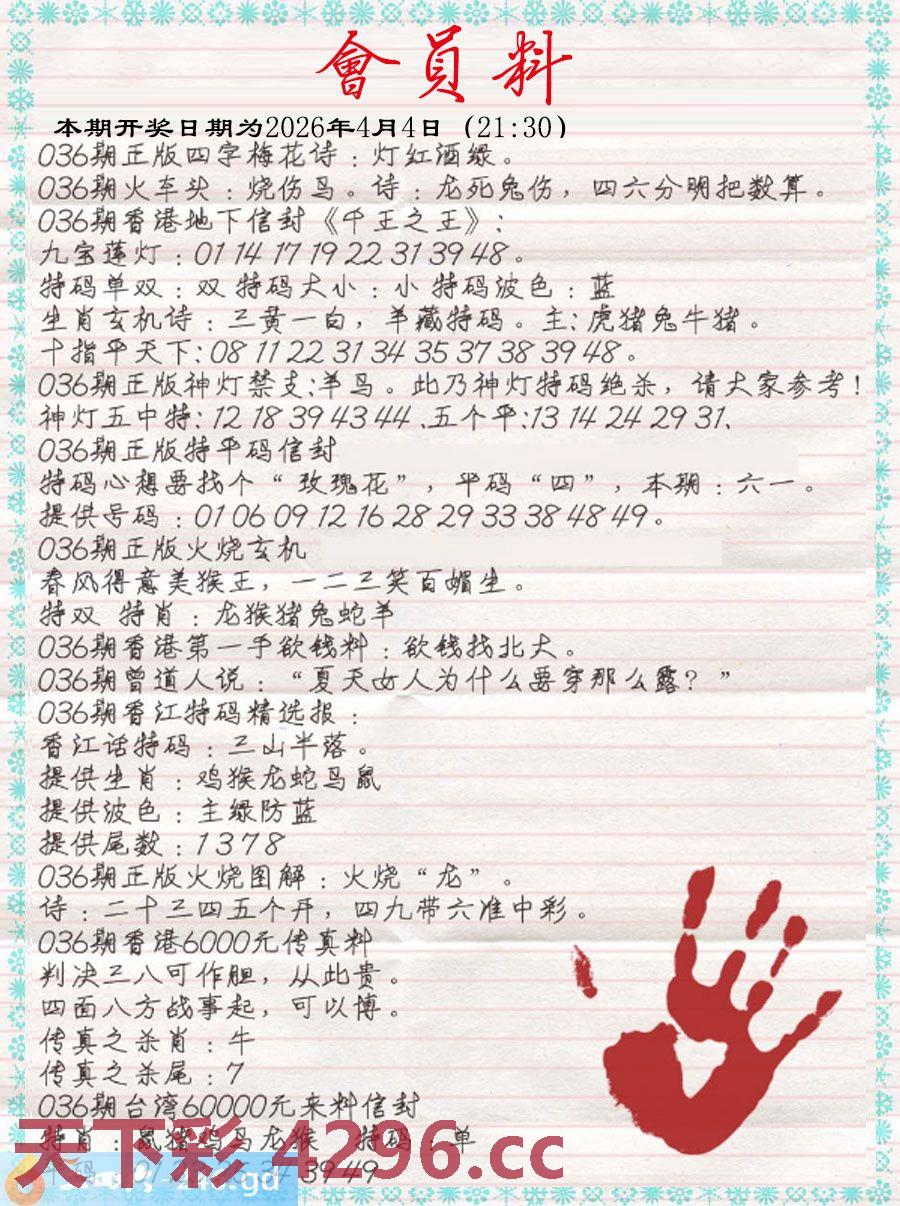 會員料
本期开奖日期为2026年4月4日（21:30）
036期正版四字梅花诗：灯红酒绿。
036期火车头：烧伤鸟。诗：龙死兔伤，四六分明把数算。
036期香港地下信封《千王之王》：
九宝莲灯：01 14 17 19 22 31 39 48。
特码单双：双 特码大小：小 特码波色：蓝
生肖玄机诗：三黄一白，羊藏特码。主：虎猪兔牛猪。
十指平天下：08 11 22 31 34 35 37 38 39 48。
036期正版神灯禁支：羊鸟。此乃神灯特码绝杀，请大家参考！
神灯五中特：12 18 39 43 44、五个平：13 14 24 29 31、
036期正版特平码信封
特码心想要找个“玫瑰花”，平码“四”，本期：六一。
提供号码：01 06 09 12 16 28 29 33 38 48 49。
036期正版火烧玄机
春风得意美猴王，一二三笑百媚生。
特双 特肖：龙猴猪兔蛇羊
036期香港第一手欲钱料：欲钱找北大。
036期曾道人说：“夏天女人为什么要穿那么露？”
036期香江特码精选报：
香江话特码：三山半落。
提供生肖：鸡猴龙蛇马鼠
提供波色：主绿防蓝
提供尾数：1 3 7 8
036期正版火烧图解：火烧“龙”。
诗：二十三四五个开，四九带六准中彩。
036期香港6000元传真料
判决三八可作胆，从此贵。
四面八方战事起，可以博。
传真之杀肖：牛
传真之杀尾：7
036期台湾60000元来料信封
特肖：鼠猪鸡马龙猴 特码：单
39 49
天下彩 4296.cc